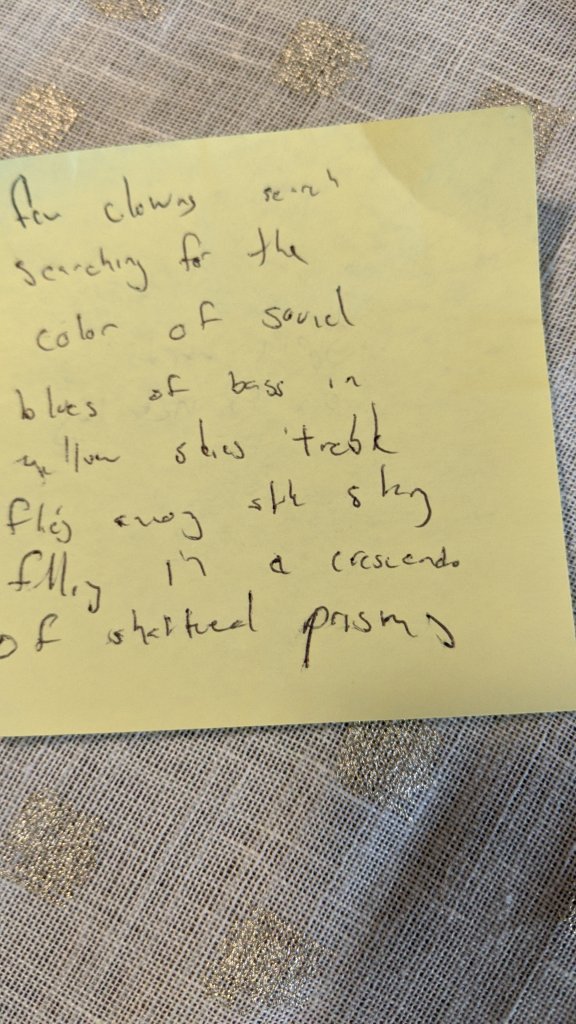 few clowns search
searching for the
color of sound
blues of bass in
yellow skies treble
flies away
falling in a crescendo
of shattered prisms